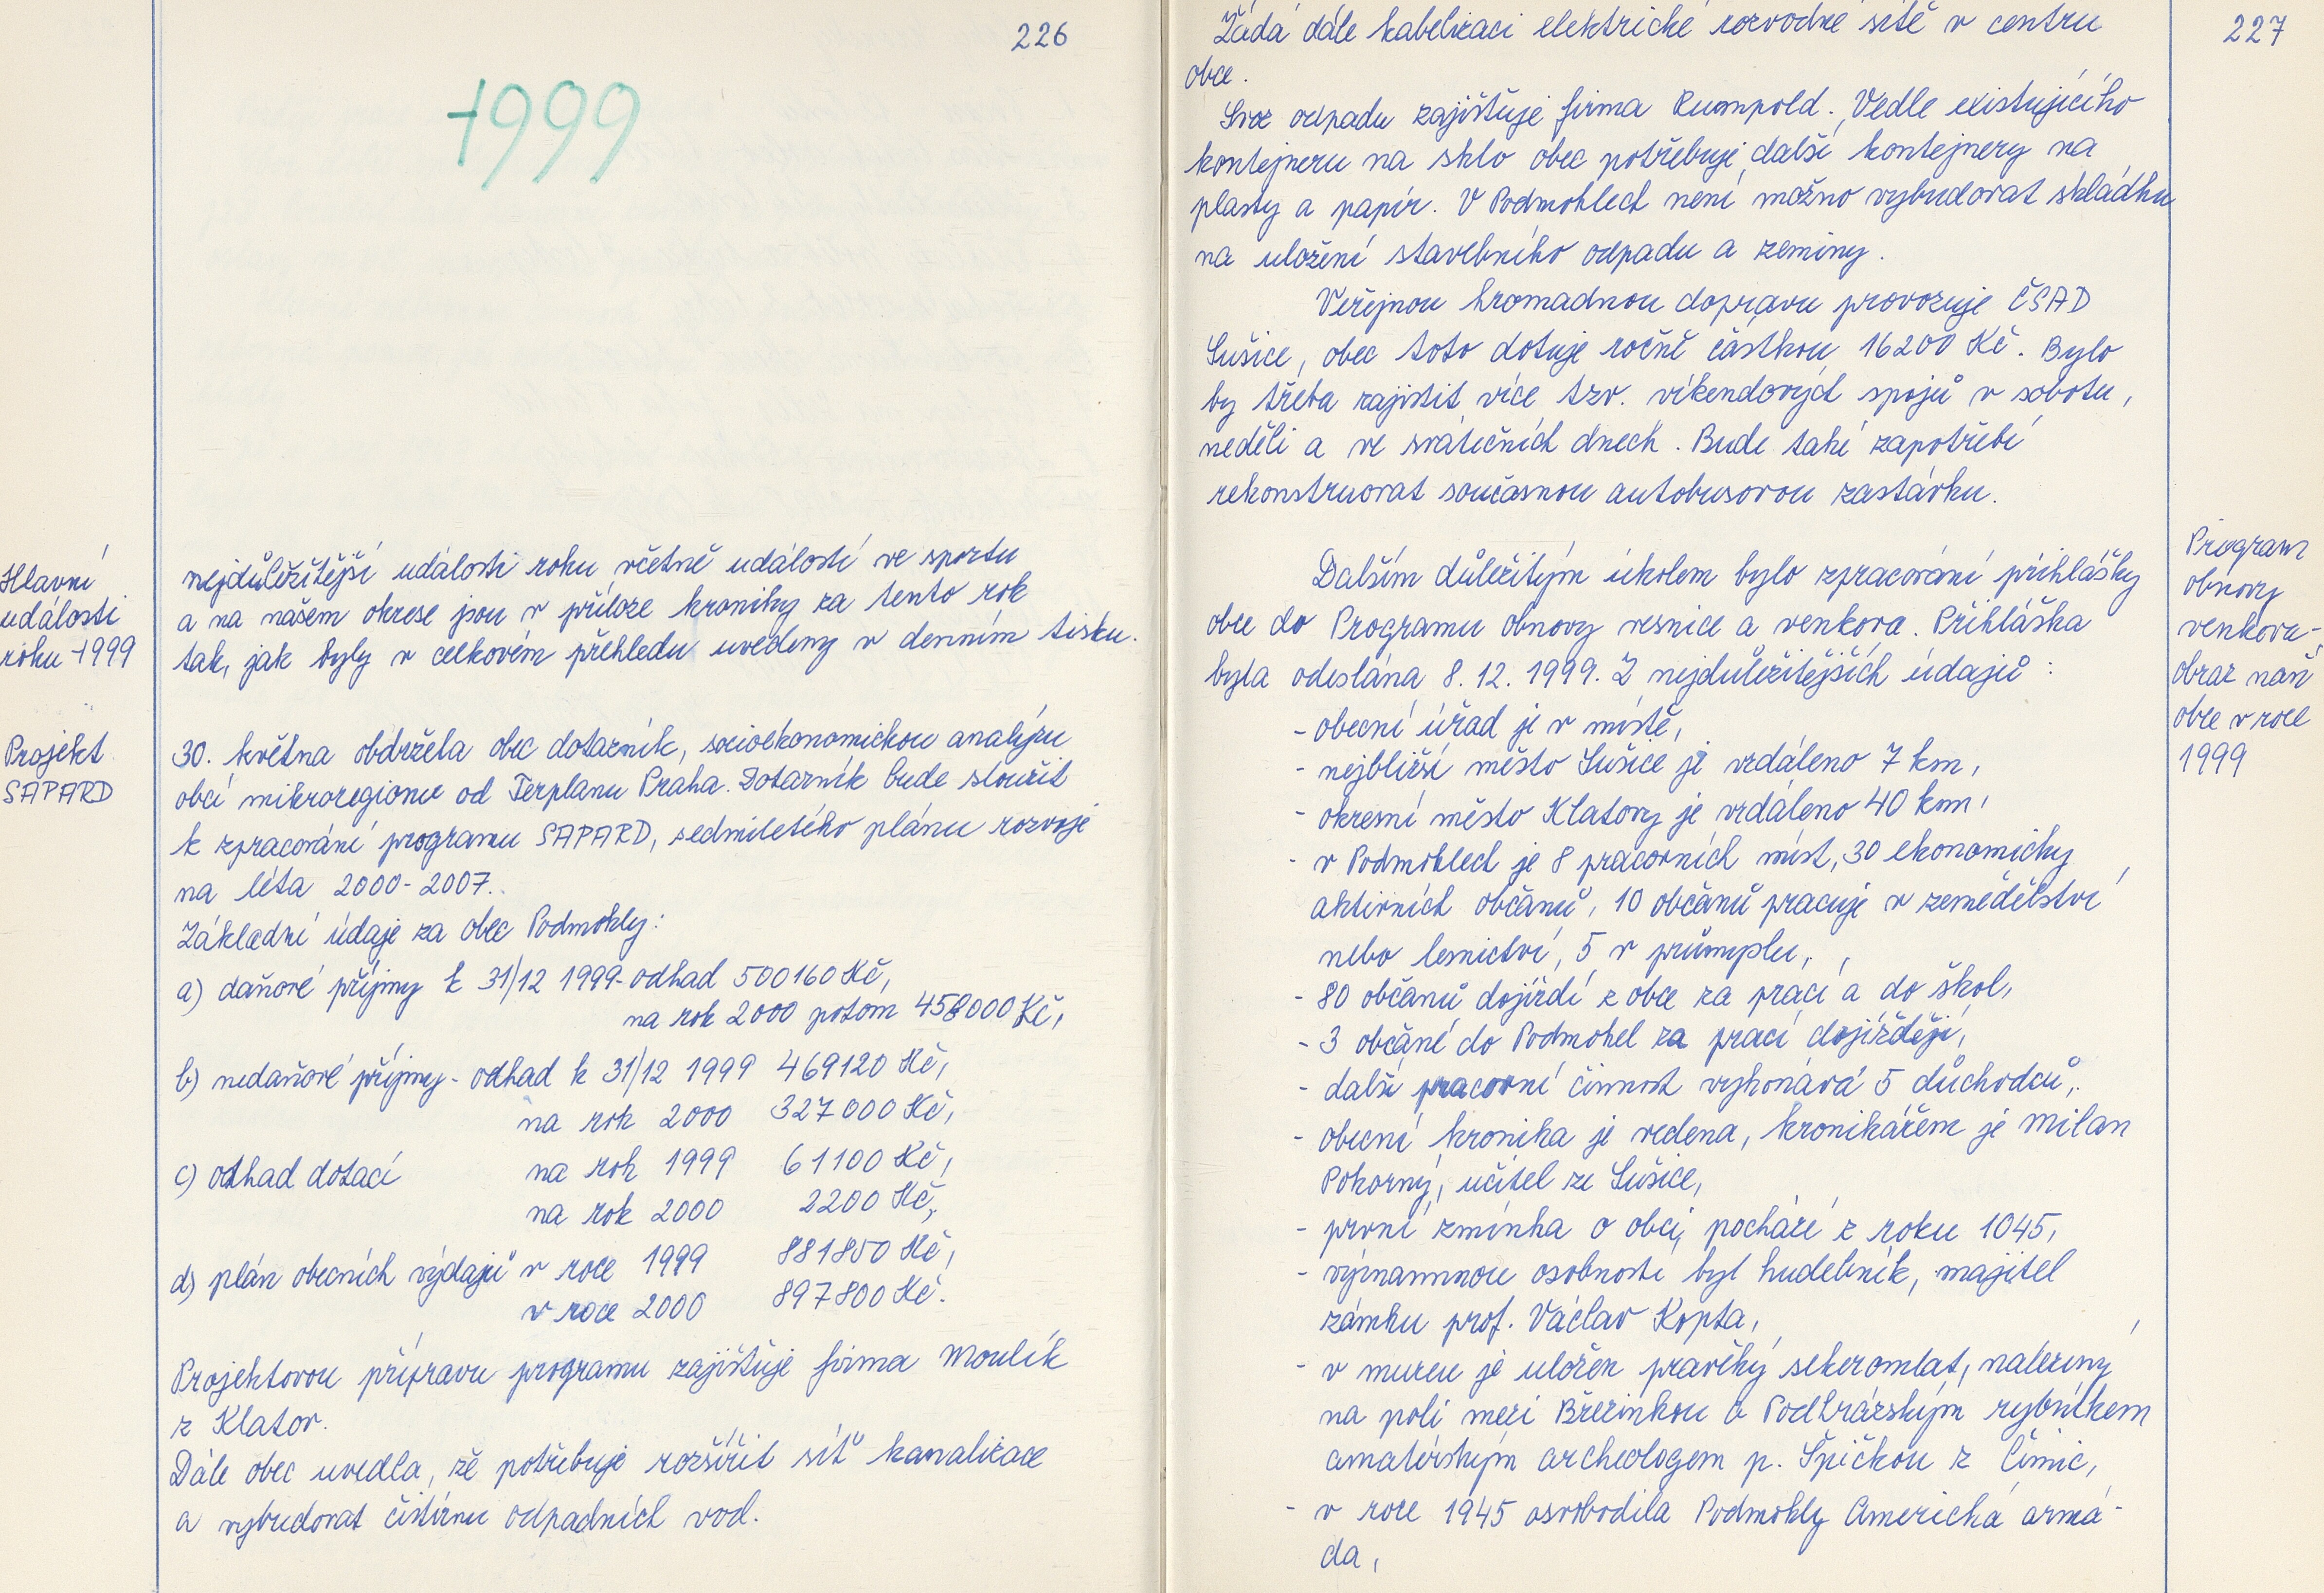 226
1999
Hlavní
události
roku 1999
nejdůležitější události roku včetně událostí ve sportu
a na našem okrese jsou v příloze kroniky za tento rok
tak, jak byly v celkovém přehledu uvedeny v denním tisku.
Projekt
SAPARD
30. května obdržela obec dotazník, socioekonomickou analýzu
obcí mikroregionu od Terplanu Praha. Dotazník bude sloužit
k zpracování programu SAPARD, sedmiletého plánu rozvoje
na léta 2000-2007.
Základní údaje za obec Podmokly:
a) daňové příjmy k 31/12 1999- odhad 500160 Kč,
na rok 2000 potom 458000 Kč,
b) nedaňové příjmy - odhad k 31/12 1999 469120 Kč,
na rok 2000 327000 Kč,
c) odhad dotací na rok 1999 61100 Kč,
na rok 2000 2200 Kč,
d) plán obecních výdajů v roce 1999 881850 Kč,
v roce 2000 897800 Kč.
Projektovou přípravu programu zajišťuje firma Moulík
z Klatov.
Dále obec uvedla, že potřebuje rozšířit síť kanalizace
a vybudovat čistírnu odpadních vod.
227
Žádá dále kabelizaci elektrické rozvodné sítě v centru
obce.
Svoz odpadu zajišťuje firma Rumpold. Vedle existujícího
kontejneru na sklo obec potřebuje další kontejnery na
plasty a papír. V Podmoklech není možno vybudovat skládku
na uložení stavebního odpadu a zeminy.
Veřejnou hromadnou dopravu provozuje ČSAD
Sušice, obec toto dotuje ročně částkou 16200 Kč. Bylo
by třeba zajistit více tzv. víkendových spojů v sobotu,
neděli a ve svátečních dnech. Bude také zapotřebí
rekonstruovat současnou autobusovou zastávku.
Program
obnovy
venkova-
obraz naší
obce v roce
1999
Dalším důležitým úkolem bylo zpracování přihlášky
obce do Programu obnovy vesnice a venkova. Přihláška
byla odeslána 8. 12. 1999. Z nejdůležitějších údajů :
- obecní úřad je v místě,
- nejbližší město Sušice je vzdáleno 7 km,
- okresní město Klatovy je vzdáleno 40 km,
- v Podmoklech je 8 pracovních míst, 30 ekonomicky
aktivních občanů, 10 občanů pracuje v zemědělství
nebo lesnictví, 5 v průmyslu,
- 80 občanů dojíždí z obce za prací a do škol,
- 3 občané do Podmokel za prací dojíždějí,
- další pracovní činnost vykonává 5 důchodců,
- obecní kronika je vedena, kronikářem je Milan
Pokorný, učitel ze Sušice,
- první zmínka o obci pochází z roku 1045,
- význammnou osobností byl hudebník, majitel
zámku prof. Václav Kopta,
- v muzeu je uložen pravěký sekeromlat, nalezený
na poli mezi Březinkou a Podhrázským rybníkem
amatérským archeologem p. Špičkou z Čímic,
- v roce 1945 osvobodila Podmokly Americká armá-
da,